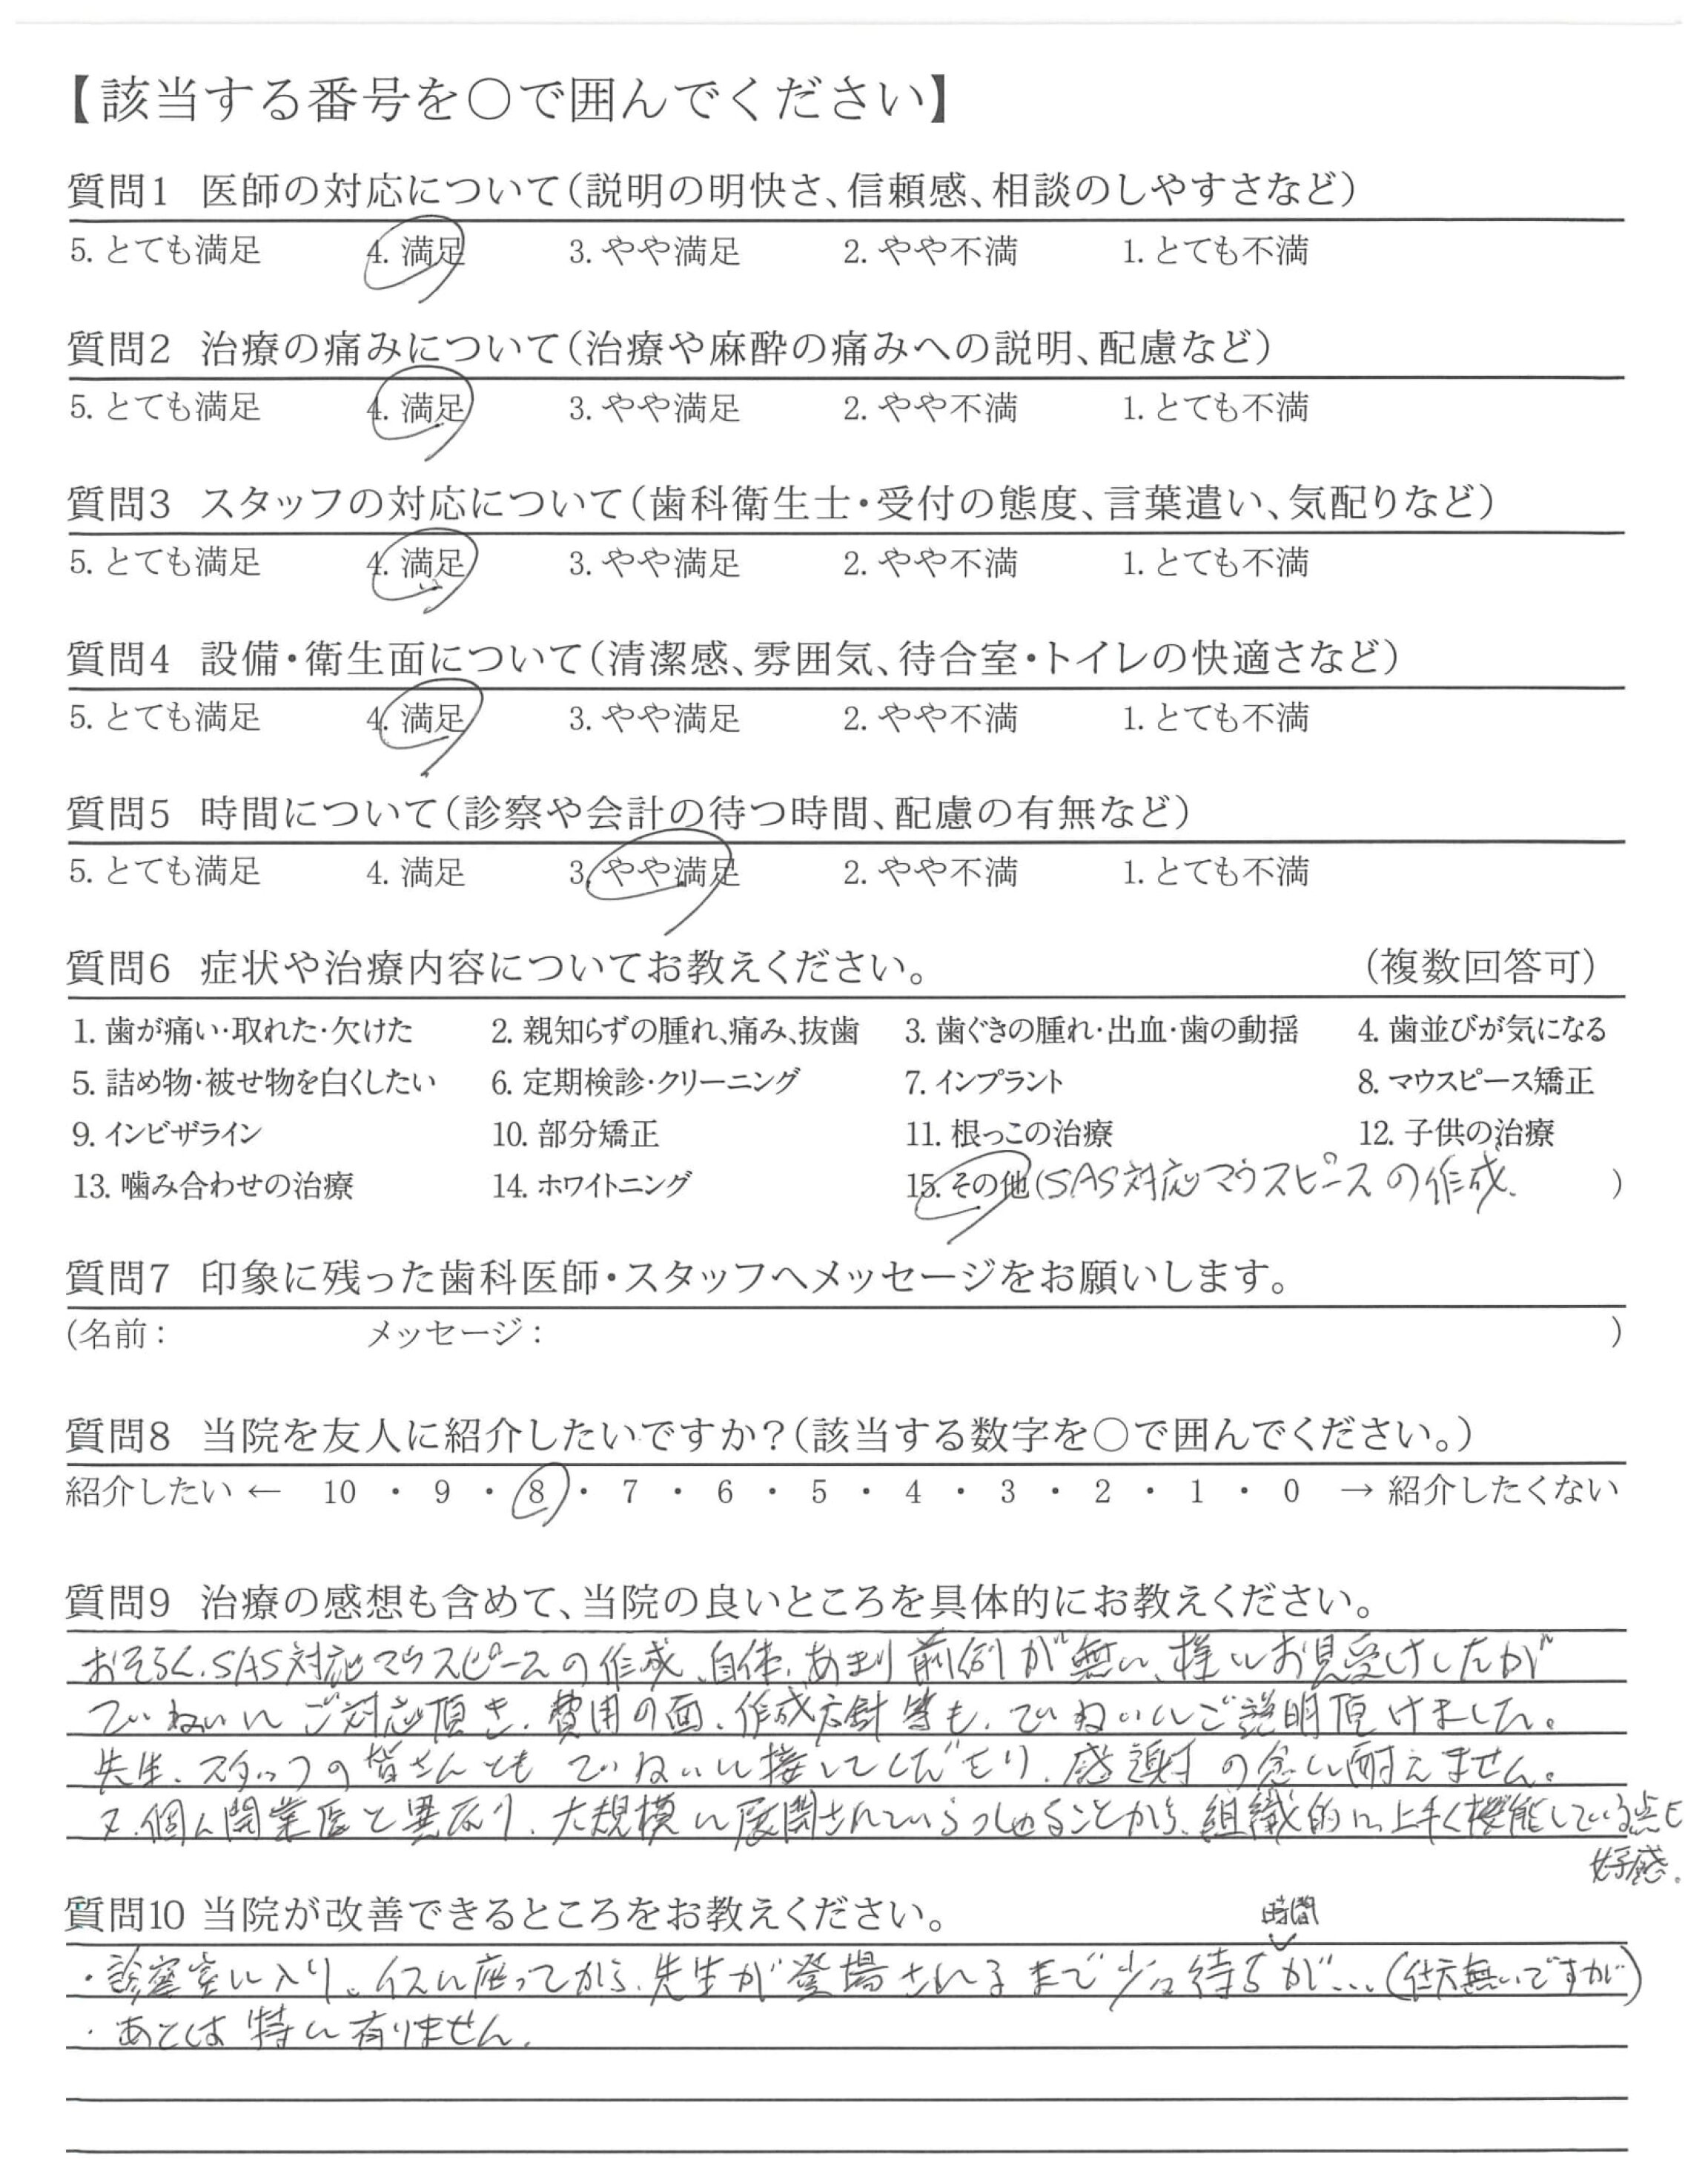 【該当する番号を〇で囲んでください】
質問1 医師の対応について（説明の明快さ、信頼感、相談のしやすさなど）
5. とても満足 4. 満足 3. やや満足 2. やや不満 1. とても不満
質問2 治療の痛みについて（治療や麻酔の痛みへの説明、配慮など）
5. とても満足 4. 満足 3. やや満足 2. やや不満 1. とても不満
質問3 スタッフの対応について（歯科衛生士・受付の態度、言葉遣い、気配りなど）
5. とても満足 4. 満足 3. やや満足 2. やや不満 1. とても不満
質問4 設備・衛生面について（清潔感、雰囲気、待合室・トイレの快適さなど）
5. とても満足 4. 満足 3. やや満足 2. やや不満 1. とても不満
質問5 時間について（診察や会計の待つ時間、配慮の有無など）
5. とても満足 4. 満足 3. やや満足 2. やや不満 1. とても不満
質問6 症状や治療内容についてお教えください。 （複数回答可）
1. 歯が痛い・取れた・欠けた 2. 親知らずの腫れ、痛み、抜歯 3. 歯ぐきの腫れ・出血・歯の動揺 4. 歯並びが気になる
5. 詰め物・被せ物を白くしたい 6. 定期検診・クリーニング 7. インプラント 8. マウスピース矯正
9. インビザライン 10. 部分矯正 11. 根っこの治療 12. 子供の治療
13. 噛み合わせの治療 14. ホワイトニング 15. その他（SAS対応マウスピースの作成. ）
質問7 印象に残った歯科医師・スタッフへメッセージをお願いします。
（名前： メッセージ： ）
質問8 当院を友人に紹介したいですか？（該当する数字を〇で囲んでください。）
紹介したい ← 10 ・ 9 ・ 8 ・ 7 ・ 6 ・ 5 ・ 4 ・ 3 ・ 2 ・ 1 ・ 0 → 紹介したくない
質問9 治療の感想も含めて、当院の良いところを具体的にお教えください。
おそらく、SAS対応マウスピースの作成、自体、あまり前例が無い、様にお見受けしたが
ていねいにご対応頂き、費用の面、作成方針等も、ていねいにご説明頂けました。
先生、スタッフの皆さんとも ていねいに接してくださり、感謝の念に耐えません。
又、個人開業医と異なり、大規模に展開されていらっしゃることから、組織的に、上手く機能している点も
好感.
質問10 当院が改善できるところをお教えください。
時間
・診察室に入り、イスに座ってから、先生が登場されるまで少々待ちが...（仕方無いですが）
・あとは特に有りません.